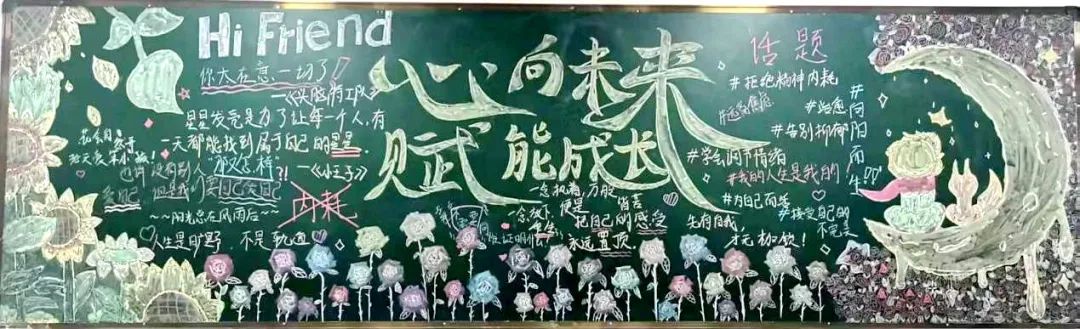 Hi Friend
你太在意一切了!
——《头脑特工队》
星星发亮是为了让每一个人,有
一天都能找到属于自己的星星
——《小王子》
没有别人
那又怎样?!
但是我们爱自己
爱自己
内耗
~~阳光总在风雨后~~
人生是旷野,不是轨道
心向未来
赋能成长
一念放下,
便是
把自己的感受
永远置顶
话题
#拒绝精神内耗
#远离焦虑
#治愈
#告别抑郁
#向阳而生!
#学会调节情绪
#我的人生是我的
#为自己而答
#接受自己的
不完美
先有自我,
才元加欲!